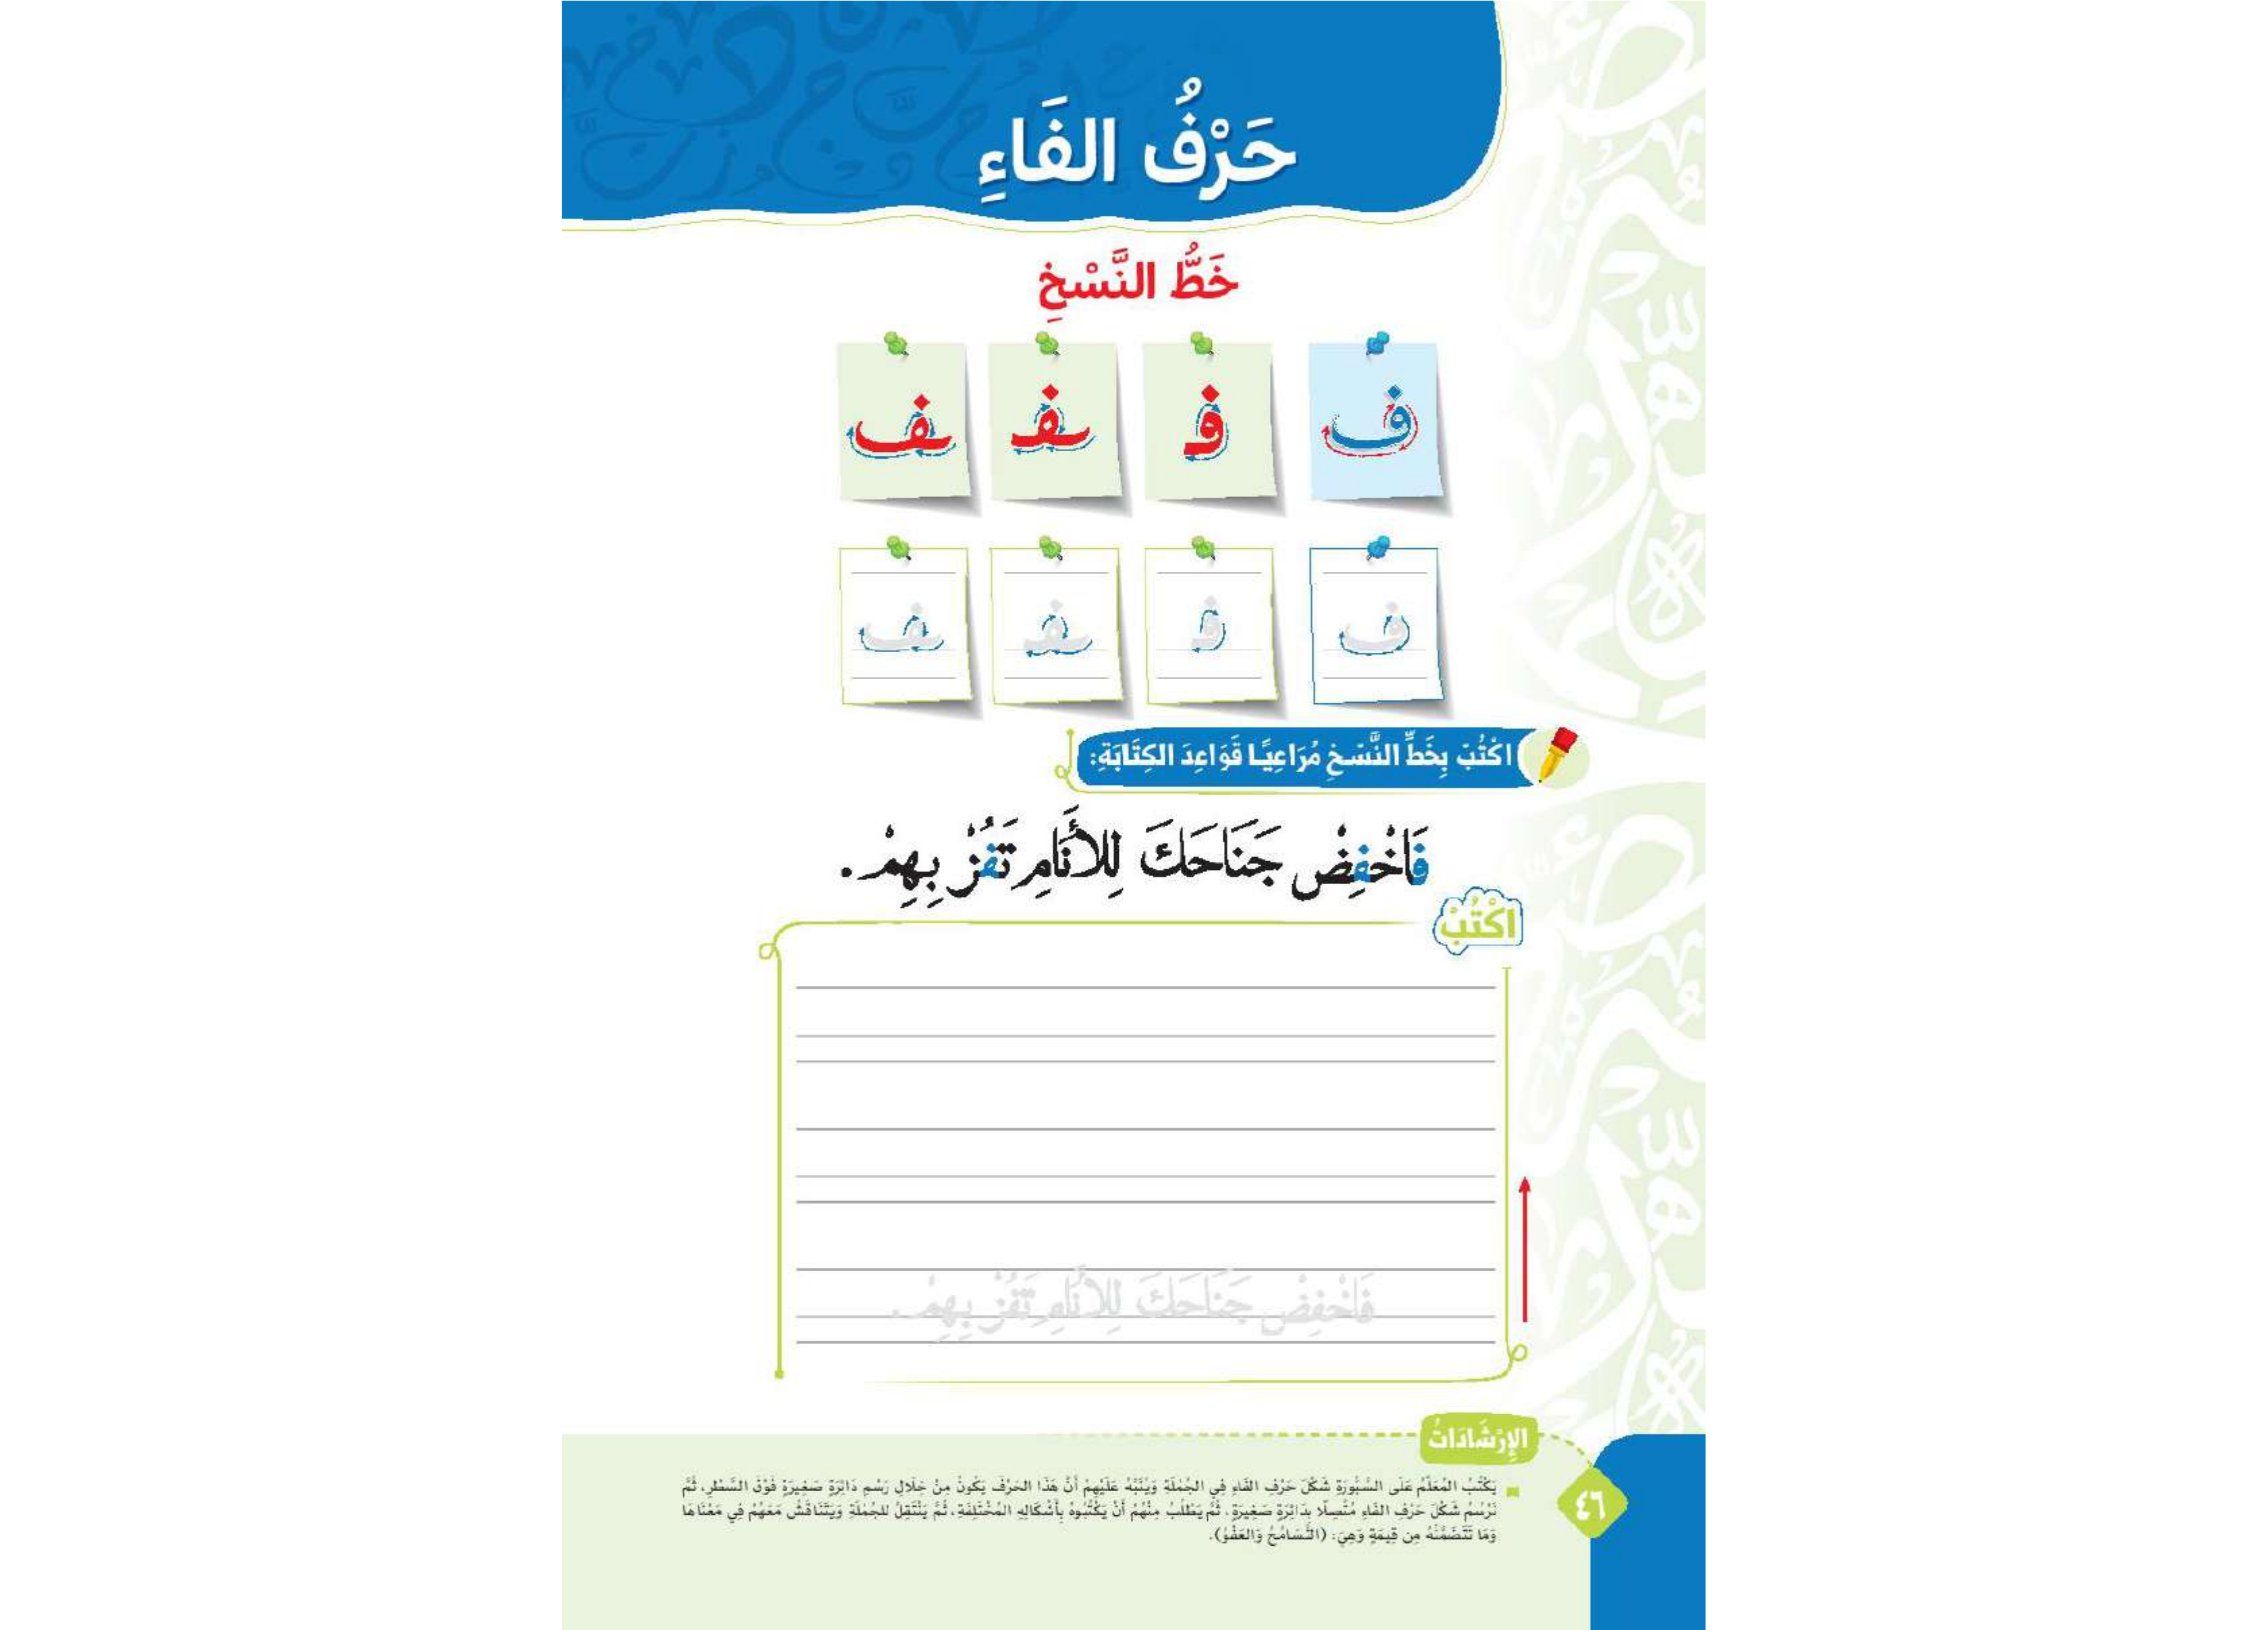 حَرْفُ الفَاءِ
خَطُّ النَّسْخِ
ف فـ ـفـ ـف
ف فـ ـفـ ـف
اكْتُبْ بِخَطِّ النَّسْخِ مُرَاعِيًا قَوَاعِدَ الكِتَابَةِ:
فَاخْفِضْ جَنَاحَكَ لِلأَنَامِ تَفُزْ بِهِمْ.
اكْتُبْ
فَاخْفِضْ جَنَاحَكَ لِلأَنَامِ تَفُزْ بِهِمْ.
الإِرْشَادَاتُ
يَكْتُبُ المُعَلِّمُ عَلَى السَّبُّورَةِ شَكْلَ حَرْفِ الفَاءِ فِي الجُمْلَةِ وَيُنَبِّهُ عَلَيْهِمْ أَنَّ هَذَا الحَرْفَ يَكُونُ مِنْ خِلَالِ رَسْمِ دَائِرَةٍ صَغِيرَةٍ فَوْقَ السَّطْرِ، ثُمَّ
نَرْسُمُ شَكْلَ حَرْفِ الفَاءِ مُتَّصِلًا بِدَائِرَةٍ صَغِيرَةٍ، ثُمَّ يَطْلُبُ مِنْهُمْ أَنْ يَكْتُبُوهُ بِأَشْكَالِهِ المُخْتَلِفَةِ، ثُمَّ يَنْتَقِلُ للجُمْلَةِ وَيَتَنَاقَشُ مَعَهُمْ فِي مَعْنَاهَا
وَمَا تَتَضَمَّنُهُ مِن قِيمَةٍ وَهِيَ: (التَّسَامُحُ وَالعَفْوُ).
٤٦